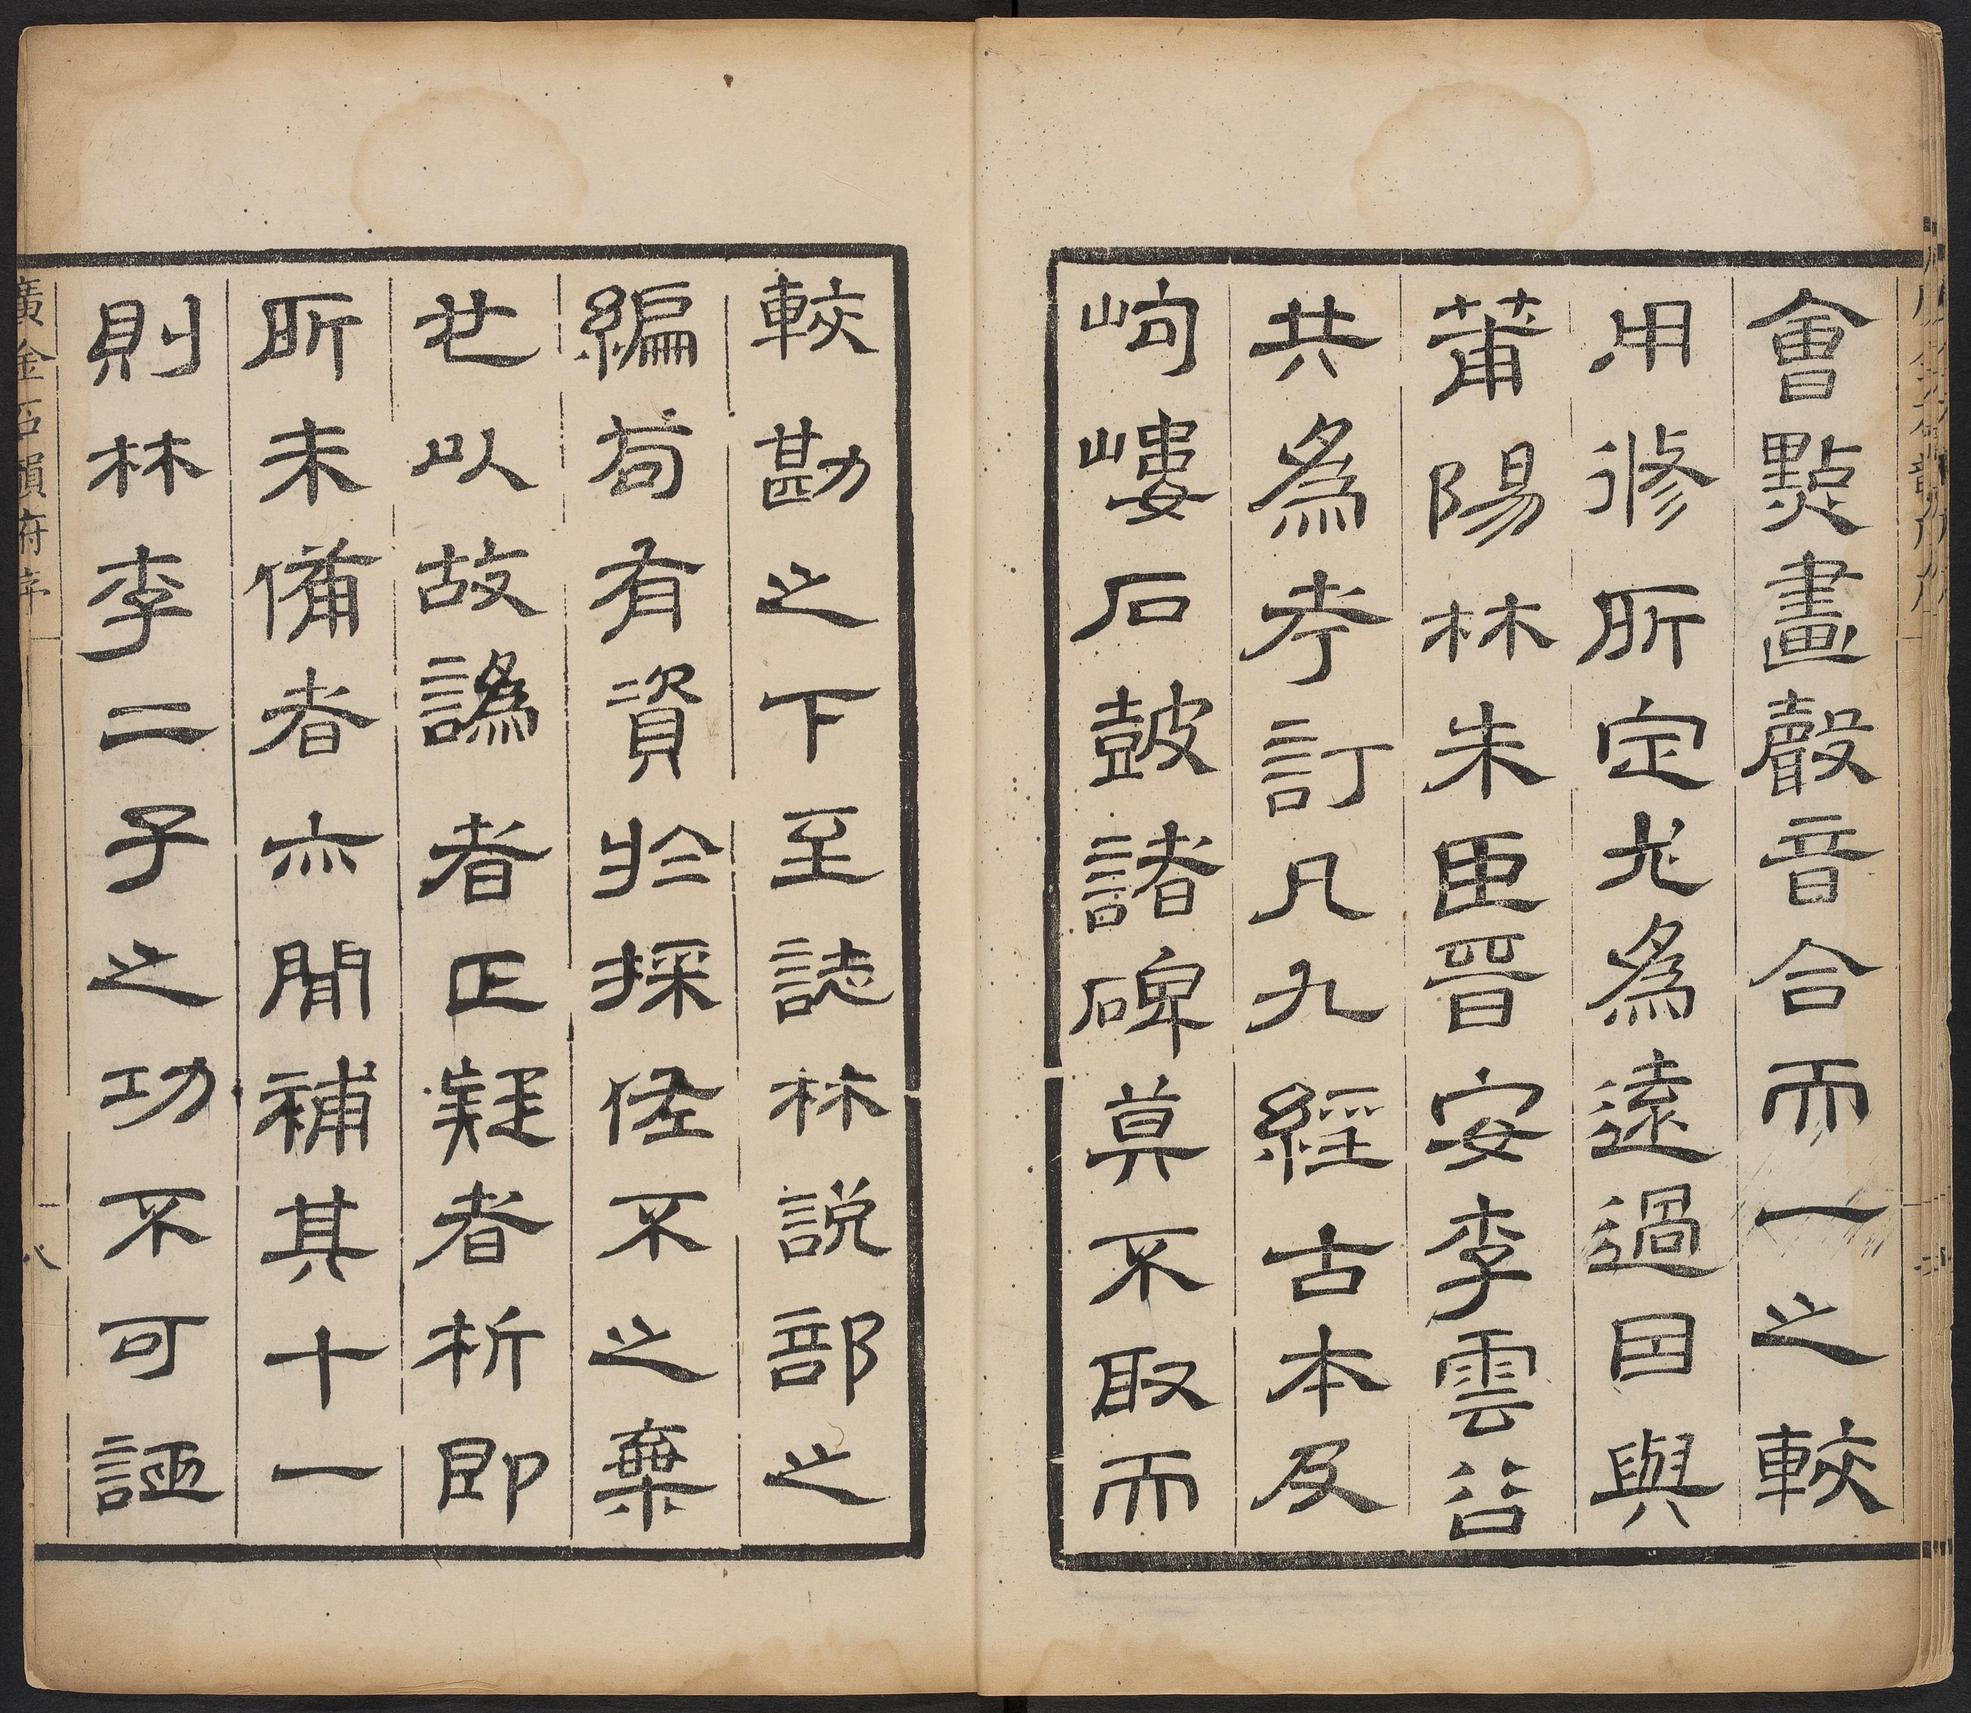 會㸃畫聲音合而一之較
用修所定尤為遠過因與
莆陽林朱臣晉安李雲谷
共為考訂凡九經古本及
岣嶁石鼓諸碑莫不取而
較勘之下至誌林說部之
編苟有資於採倠不之棄
也以故譌者正疑者析即
所未備者亦間補其十一
則林李二子之功不可誣
廣金石韻府序
八